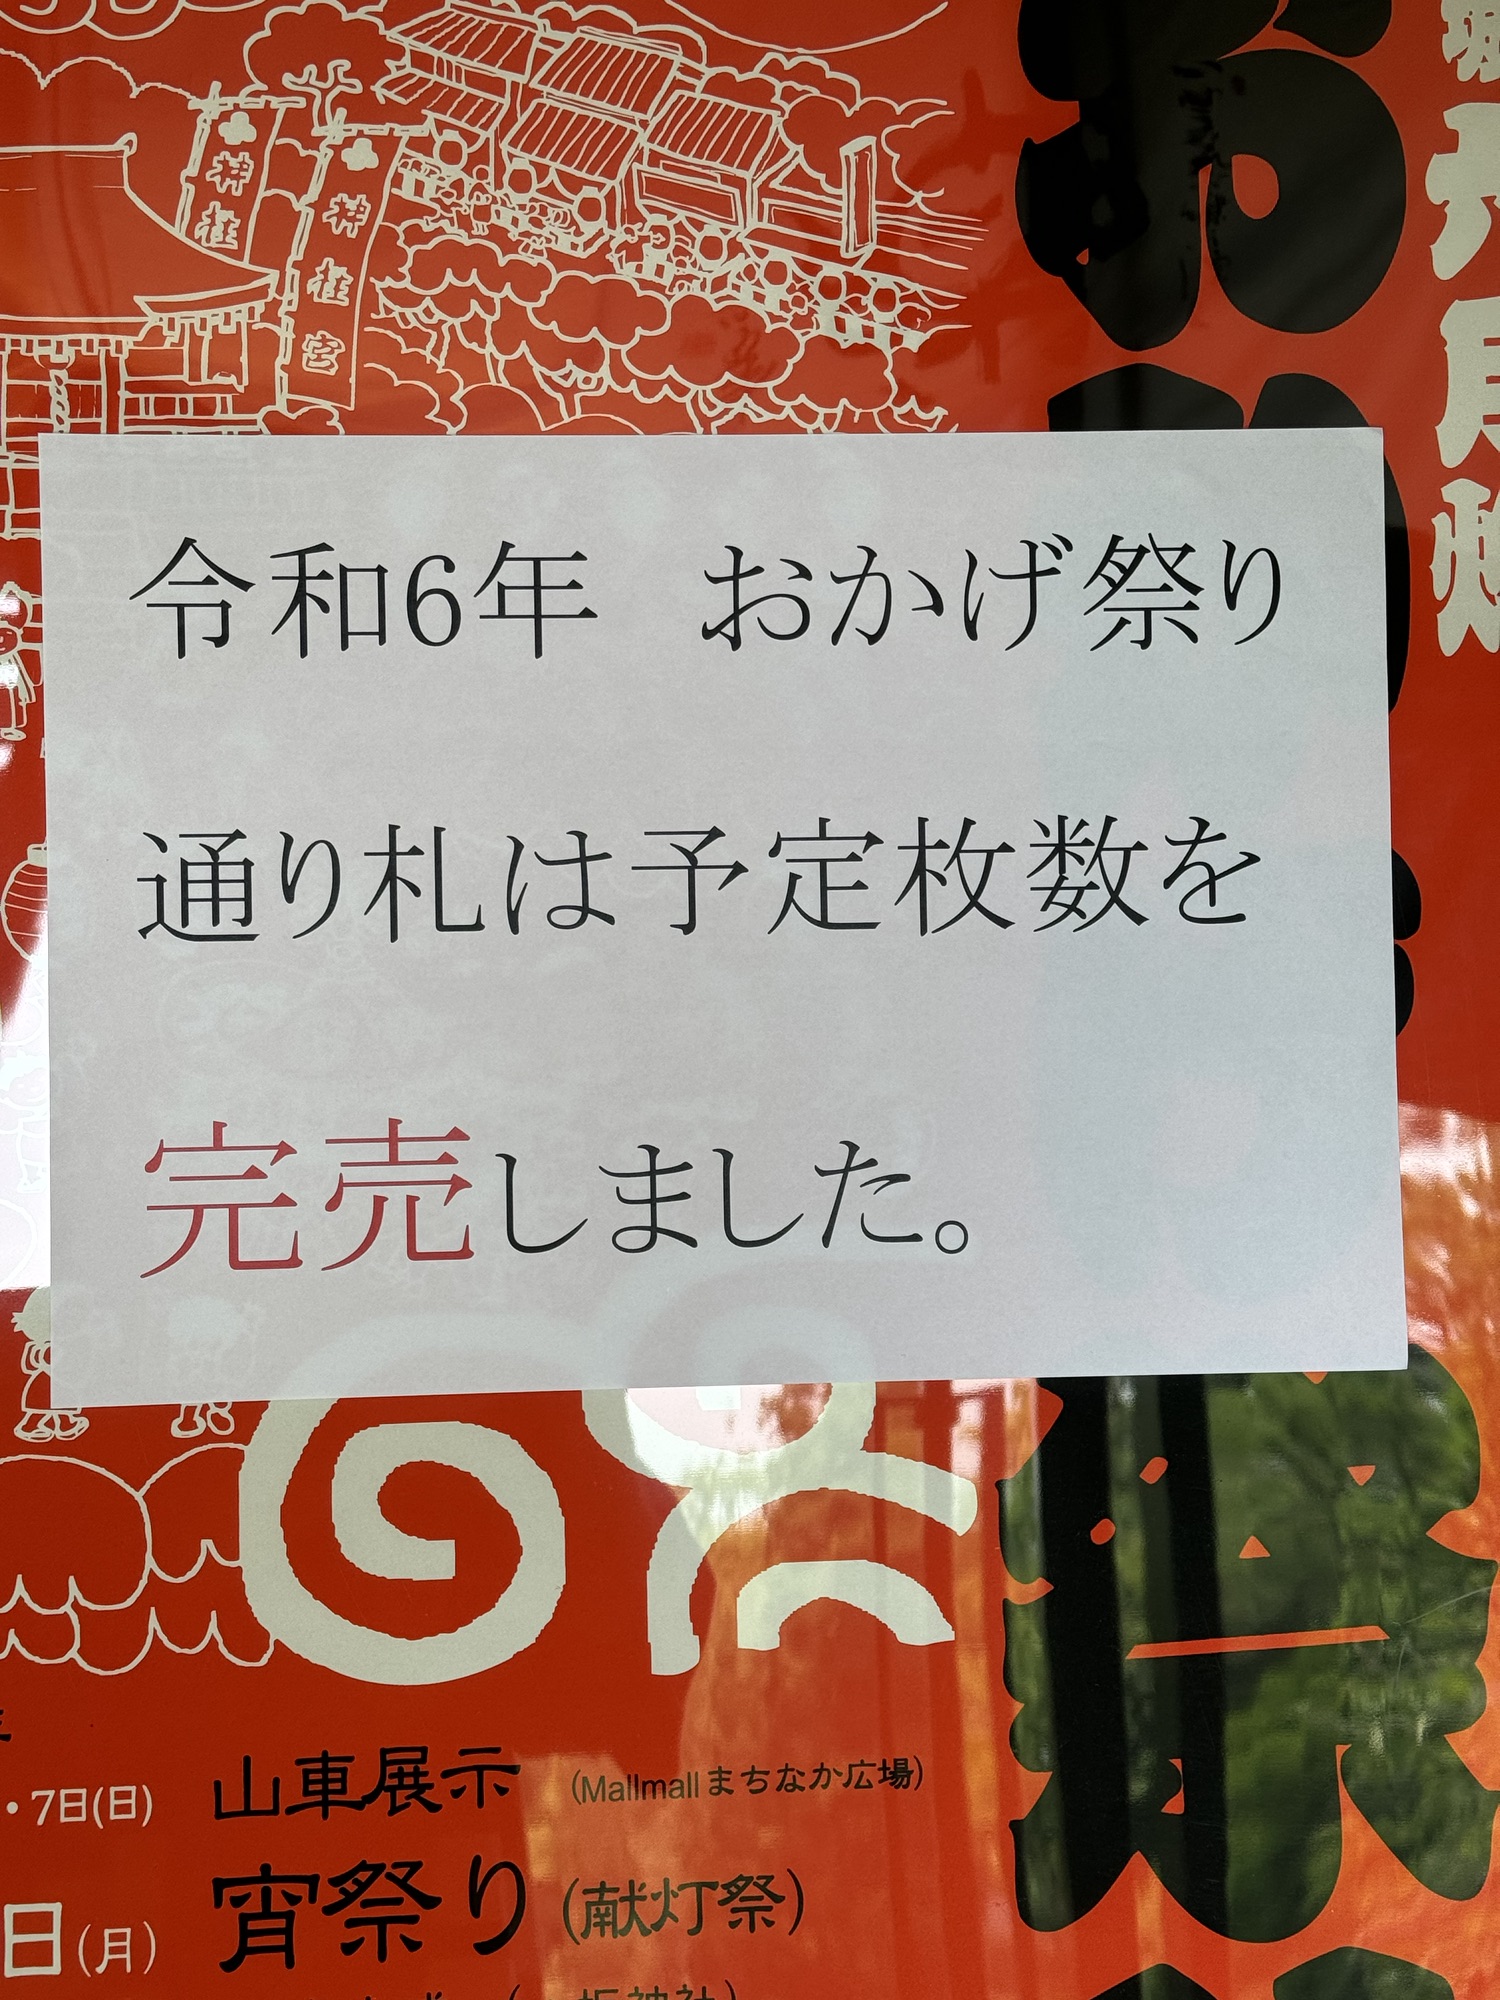 神柱
神柱宮
おかげ祭り
令和6年 おかげ祭り
通り札は予定枚数を
完売しました。
・7日(日) 山車展示 (Mallmallまちなか広場)
日(月) 宵祭り (献灯祭)